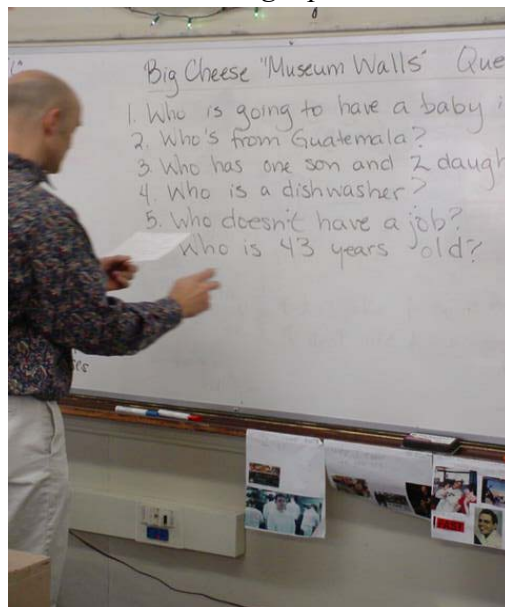 Big Cheese "Museum Walls" Que
1. Who is going to have a baby i
2. Who's from Guatemala?
3. Who has one son and 2 daugh
4. Who is a dishwasher?
5. Who doesn't have a job?
Who is 43 years old?